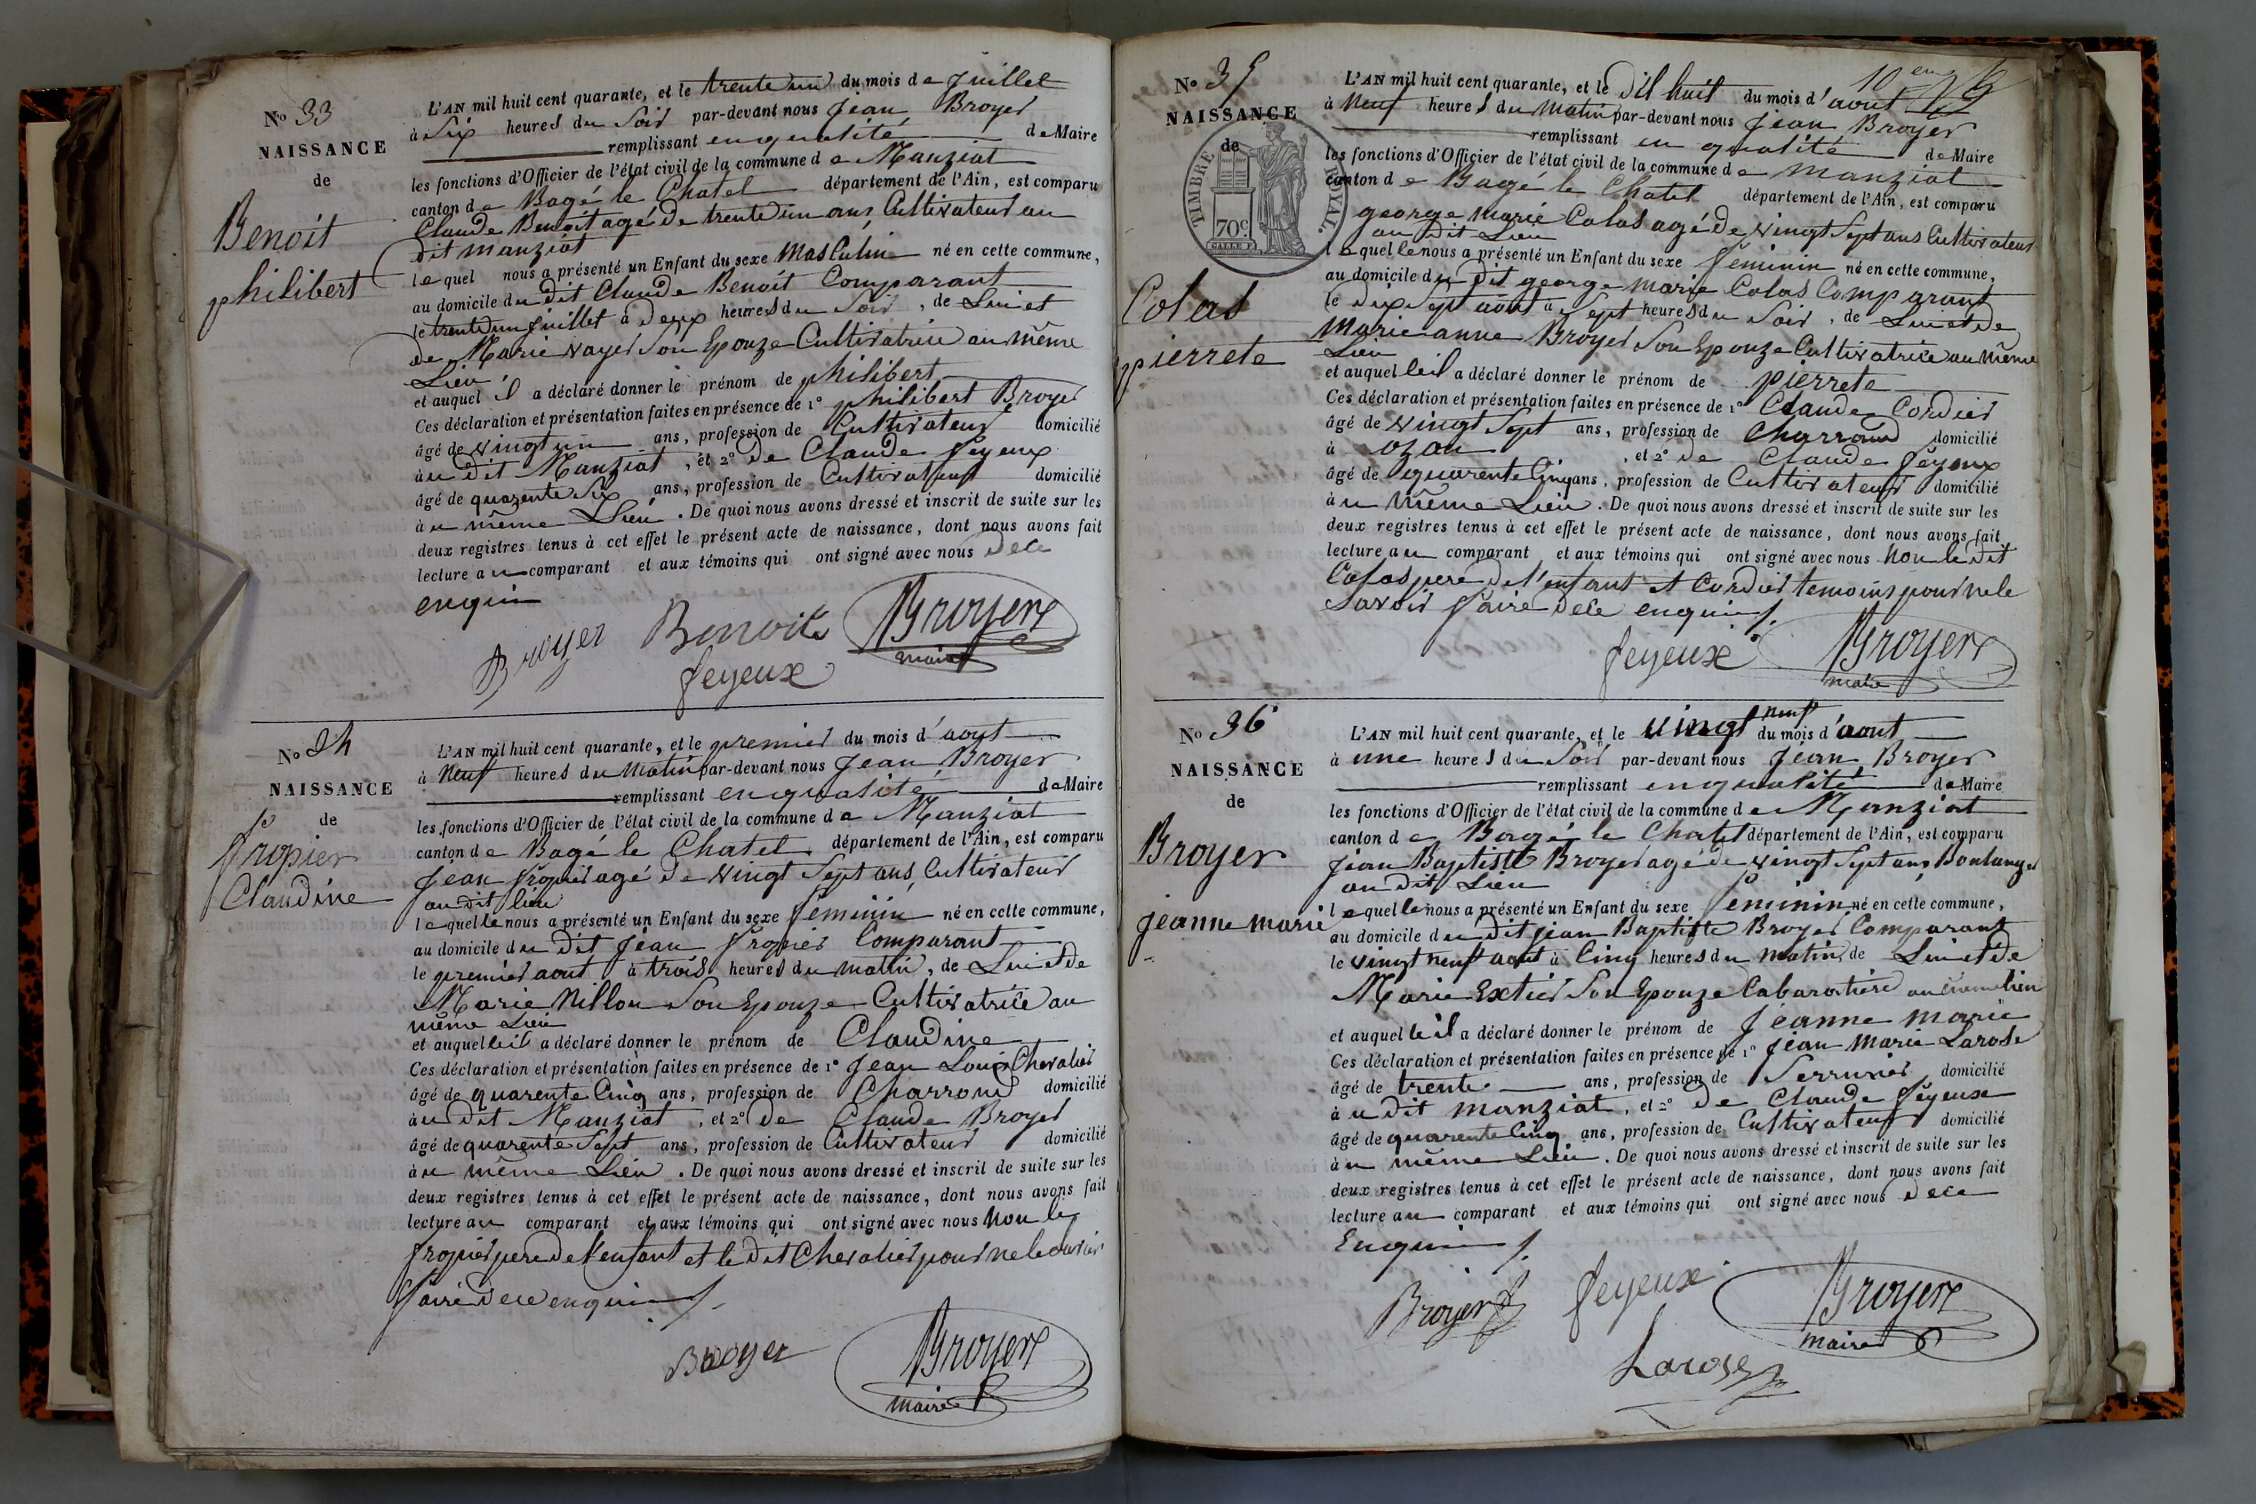 No 33
NAISSANCE
de
Benoit
philibert
L'AN mil huit cent quarante, et le trente un du mois de Juillet
à Six heures du Soir par-devant nous Jean Broyer
remplissant en qualité de Maire
les fonctions d'Officier de l'état civil de la commune de Manziat
canton de Bagé le Chatel département de l'Ain, est comparu
Claude Benoit agé de trente un ans Cultivateur au
dit manziat
lequel nous a présenté un Enfant du sexe Masculin né en cette commune,
au domicile du dit Claude Benoit Comparant
le trente un Juillet à deux heures du Soir, de Lui et
de Marie vayer Son Epouze Cultivatrice au même
Lieu
et auquel il a déclaré donner le prénom de philibert
Ces déclaration et présentation faites en présence de 1° philibert Broyer
âgé de vingt un ans, profession de Cultivateur domicilié
au dit Manziat, et 2° de Claude feyeux
âgé de quarente Six ans, profession de Cultivateur domicilié
àu même Lieu. De quoi nous avons dressé et inscrit de suite sur les
deux registres tenus à cet effet le présent acte de naissance, dont nous avons fait
lecture au comparant et aux témoins qui ont signé avec nous de ce
enquis
Broyer Benoit Broyer
maire
feyeux
No 34
NAISSANCE
de
fropier
Claudine
L'AN mil huit cent quarante, et le premier du mois d'aout
à Neuf heures du Matin par-devant nous Jean Broyer
remplissant en qualité de Maire
les fonctions d'Officier de l'état civil de la commune de Manziat
canton de Bagé le Chatel département de l'Ain, est comparu
Jean fropier agé de vingt Sept ans, Cultivateur
au dit lieu
lequel le nous a présenté un Enfant du sexe féminin né en cette commune,
au domicile du dit Jean fropier Comparant
le premier aout à trois heures du matin, de Lui et de
Marie Nillon Son Epouze Cultivatrice au
même Lieu
et auquel le il a déclaré donner le prénom de Claudine
Ces déclaration et présentation faites en présence de 1° Jean Louis Chevalier
âgé de quarente Cinq ans, profession de Charrond domicilié
àu dit Manziat, et 2° de Claude Broyer
âgé de quarente Sept ans, profession de Cultivateur domicilié
àu même Lieu. De quoi nous avons dressé et inscrit de suite sur les
deux registres tenus à cet effet le présent acte de naissance, dont nous avons fait
lecture au comparant et aux témoins qui ont signé avec nous Non le
fropier pere de l'enfant et le dit Chevalier pour ne le Savoir
faire de ce enquis
Broyer Broyer
maire
No 35
NAISSANCE
de
TIMBRE ROYAL
70c
Colas
pierrete
L'AN mil huit cent quarante, et le dil huit du mois d'aout
10em
à Neuf heures du Matin par-devant nous Jean Broyer
remplissant en qualité de Maire
les fonctions d'Officier de l'état civil de la commune de manziat
canton de Bagé le Chatel département de l'Ain, est comparu
george Marie Colas agé de vingt Sept ans Cultivateur
au dit Lieu
lequel le nous a présenté un Enfant du sexe féminin né en cette commune,
au domicile du dit george marie Colas Comparant
le dix Sept août à Sept heures du Soir, de Lui et de
Marie anne Broyer Son Epouze Cultivatrice au même
Lieu
et auquel le il a déclaré donner le prénom de pierrete
Ces déclaration et présentation faites en présence de 1° Claude Cordier
âgé de vingt Sept ans, profession de Charrond domicilié
à ozan, et 2° de Claude feyeux
âgé de quarente Cinq ans, profession de Cultivateur domicilié
àu même Lieu. De quoi nous avons dressé et inscrit de suite sur les
deux registres tenus à cet effet le présent acte de naissance, dont nous avons fait
lecture au comparant et aux témoins qui ont signé avec nous Non le dit
Colas pere de l'enfant et Cordier temoins pour ne le
Savoir faire de ce enquis
feyeux Broyer
maire
No 36
NAISSANCE
de
Broyer
jeanne marie
L'AN mil huit cent quarante, et le vingt neuf du mois d'aout
à une heures du Soir par-devant nous Jean Broyer
remplissant en qualité de Maire
les fonctions d'Officier de l'état civil de la commune de Manziat
canton de Bagé le Chatel département de l'Ain, est comparu
Jean Baptiste Broyer agé de vingt Sept ans Boulanger
au dit Lieu
lequel le nous a présenté un Enfant du sexe féminin né en cette commune,
au domicile du dit jean Baptiste Broyer Comparant
le vingt neuf aout à Cinq heures du matin, de Lui et de
Marie Extier Son Epouze Cabarotiere au même lieu
et auquel le il a déclaré donner le prénom de Jeanne marie
Ces déclaration et présentation faites en présence de 1° Jean Marie Larose
âgé de trente ans, profession de Serrurier domicilié
àu dit manziat, et 2° de Claude feyeux
âgé de quarente Cinq ans, profession de Cultivateur domicilié
àu même Lieu. De quoi nous avons dressé et inscrit de suite sur les
deux registres tenus à cet effet le présent acte de naissance, dont nous avons fait
lecture au comparant et aux témoins qui ont signé avec nous de ce
Enquis
Broyer feyeux Broyer
maire
Larose